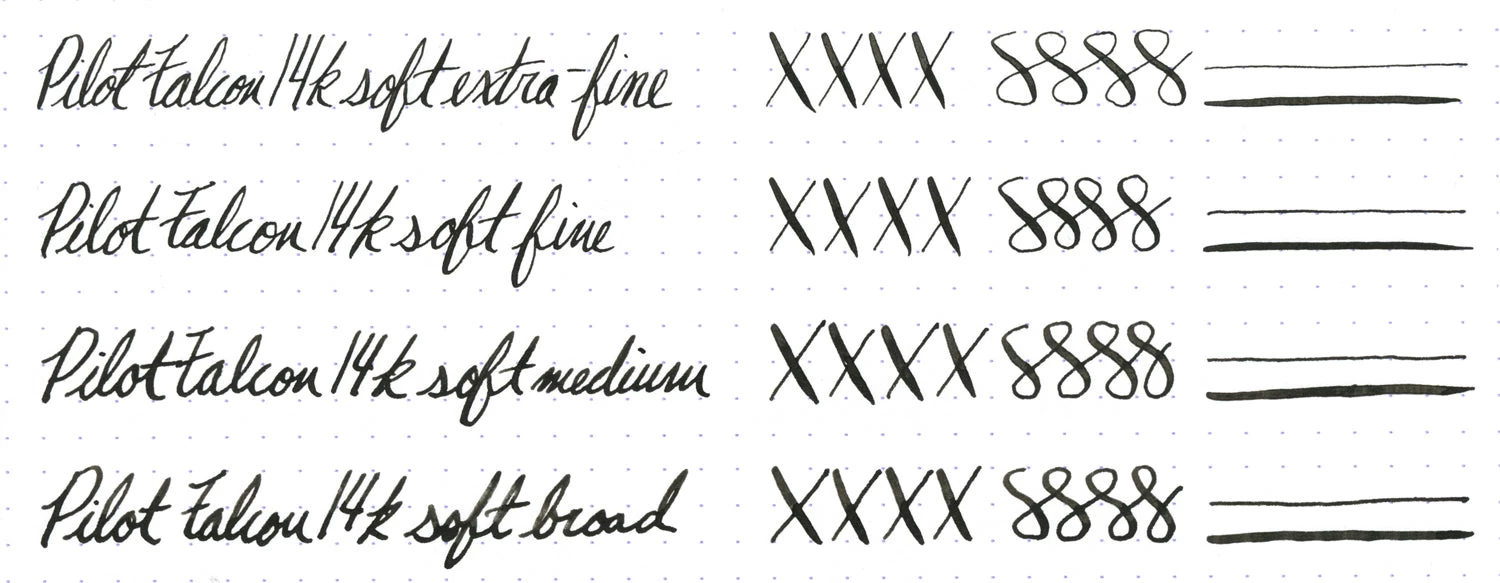 Pilot Falcon 14k soft extra-fine XXXX 8888
Pilot Falcon 14k soft fine XXXX 8888
Pilot Falcon 14k soft medium XXXX 8888
Pilot Falcon 14k soft broad XXXX 8888